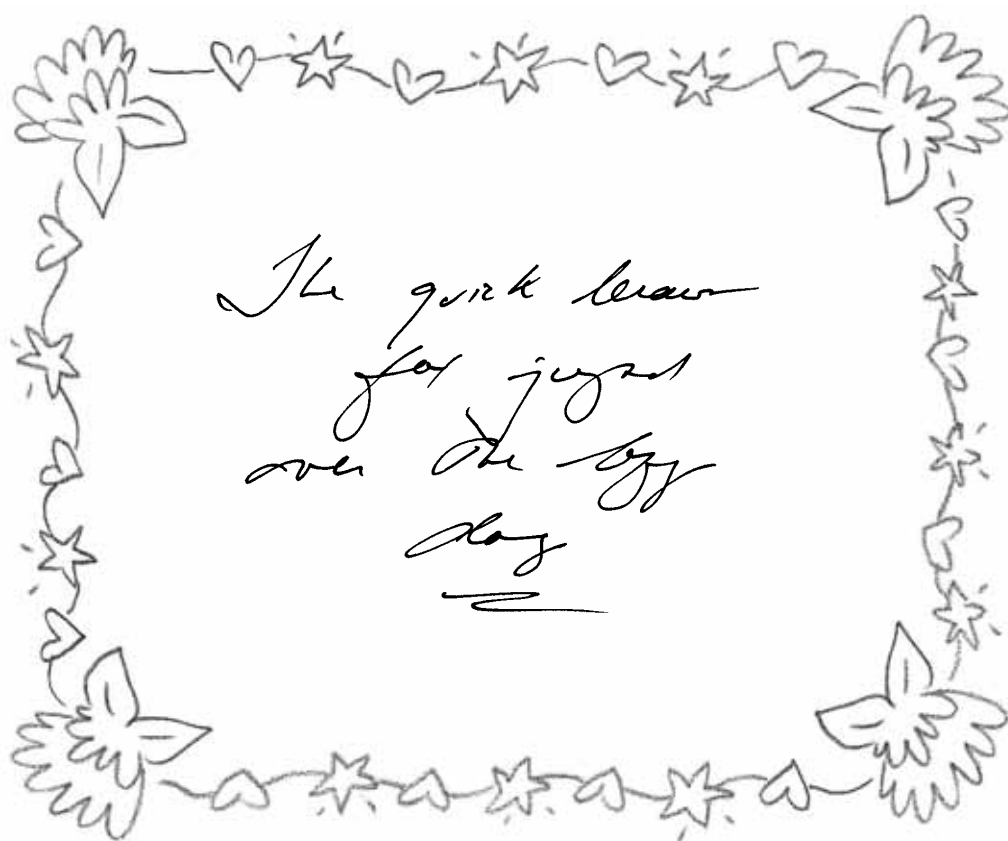 The quick brown
fox jumped
over the lazy
dog